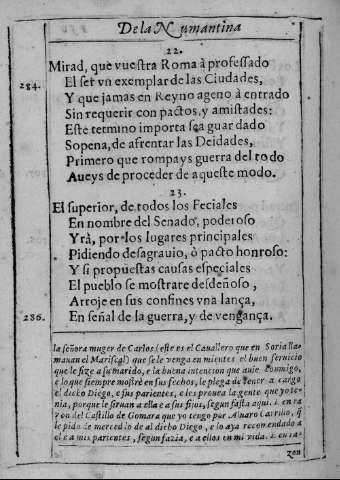 De la Numantina
22.
Mirad, que vuestra Roma à professado
284. El ser vn exemplar de las Ciudades,
Y que jamas en Reyno ageno à entrado
Sin requerir con pactos, y amistades:
Este termino importa sea guardado
Sopena, de afrentar las Deidades,
Primero que rompays guerra del todo
Aueys de proceder de aqueste modo.
23.
El superior, de todos los Feciales
En nombre del Senado, poderoso
Yrà, por los lugares principales
Pidiendo desagrauio, ò pacto honroso:
Y si propuestas causas especiales
El pueblo se mostrare desdeñoso,
Arroje en sus confines vna lança,
286. En señal de la guerra, y de vengança.
la señora muger de Carlos (este es el Cauallero que en Soria lla-
mauan el Mariscal) que se le venga en mientes el buen seruicio
que le fize a su marido, e la buena intencion que auie conmigo,
e lo que siempre mostrè en sus fechos, le plega de
el dicho Diego, e sus parientes, e les prouea la gente que yo te-
nia, porque le siruan a ella e a sus fijos, segun fasta aqui.
del Castillo de Gomara que yo tengo por Aluaro Carrillo, q̃
le pido de merced lo de al dicho Diego, e lo aya recomendado a
el e a mis parientes, segun fazia, e a ellos en mi vida.
zon